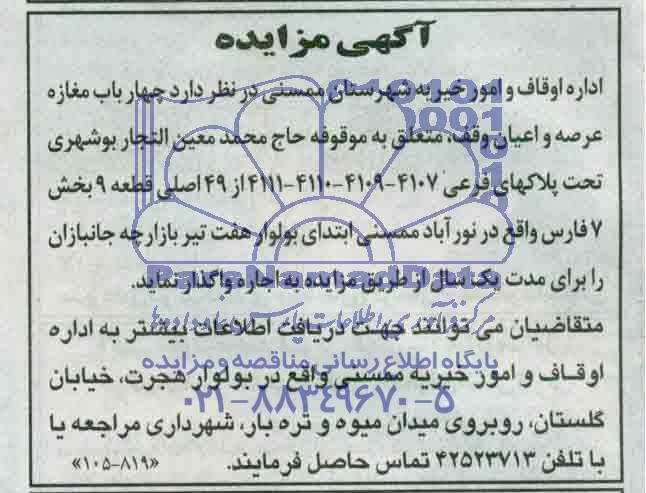 آگهی مزایده
اداره اوقاف و امور خیریه شهرستان ممسنی در نظر دارد چهار باب مغازه
عرصه و اعیان وقف، متعلق به موقوفه حاج محمد معین التجار بوشهری
تحت پلاکهای فرعی ۴۱۰۷-۴۱۰۹-۴۱۱۰-۴۱۱۱ از ۴۹ اصلی قطعه ۹ بخش
۷ فارس واقع در نورآباد ممسنی ابتدای بولوار هفت تیر بازارچه جانبازان
را برای مدت یک سال از طریق مزایده به اجاره واگذار نماید.
متقاضیان می توانند جهت دریافت اطلاعات بیشتر به اداره
اوقاف و امور خیریه ممسنی واقع در بولوار هجرت، خیابان
گلستان، روبروی میدان میوه و تره بار، شهرداری مراجعه یا
با تلفن ۴۲۵۲۳۷۱۳ تماس حاصل فرمایند. «۱۰۵-۸۱۹»
ParsNamadData
پایگاه اطلاع رسانی مناقصه و مزایده
۰۲۱-۸۸۳۴۹۶۷۰-۵